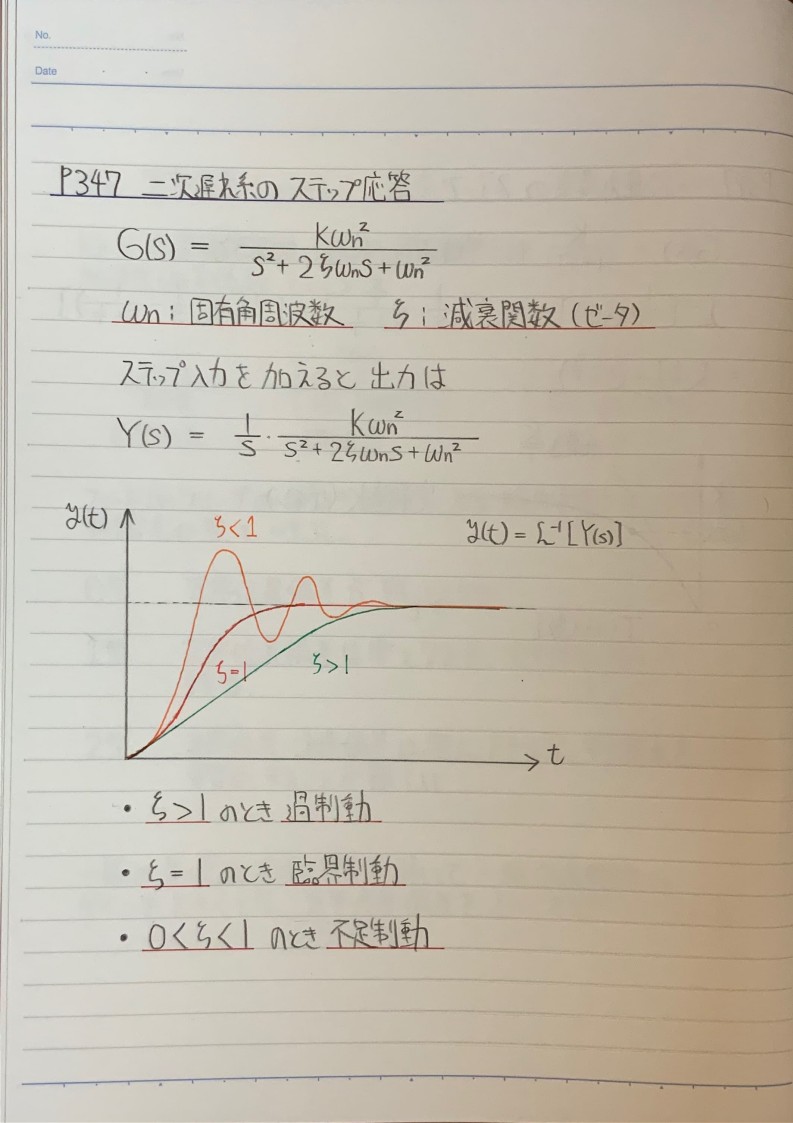 No.
Date
P347 二次遅れ系のステップ応答
G(s) = Kωn² / (s² + 2ζωns + ωn²)
ωn : 固有角周波数 ζ : 減衰関数 (ゼータ)
ステップ入力を加えると出力は
Y(s) = 1/s · Kωn² / (s² + 2ζωns + ωn²)
y(t) ζ<1 y(t) = L⁻¹[Y(s)]
ζ=1 ζ>1
t
• ζ>1 のとき 過制動
• ζ=1 のとき 臨界制動
• 0<ζ<1 のとき 不足制動